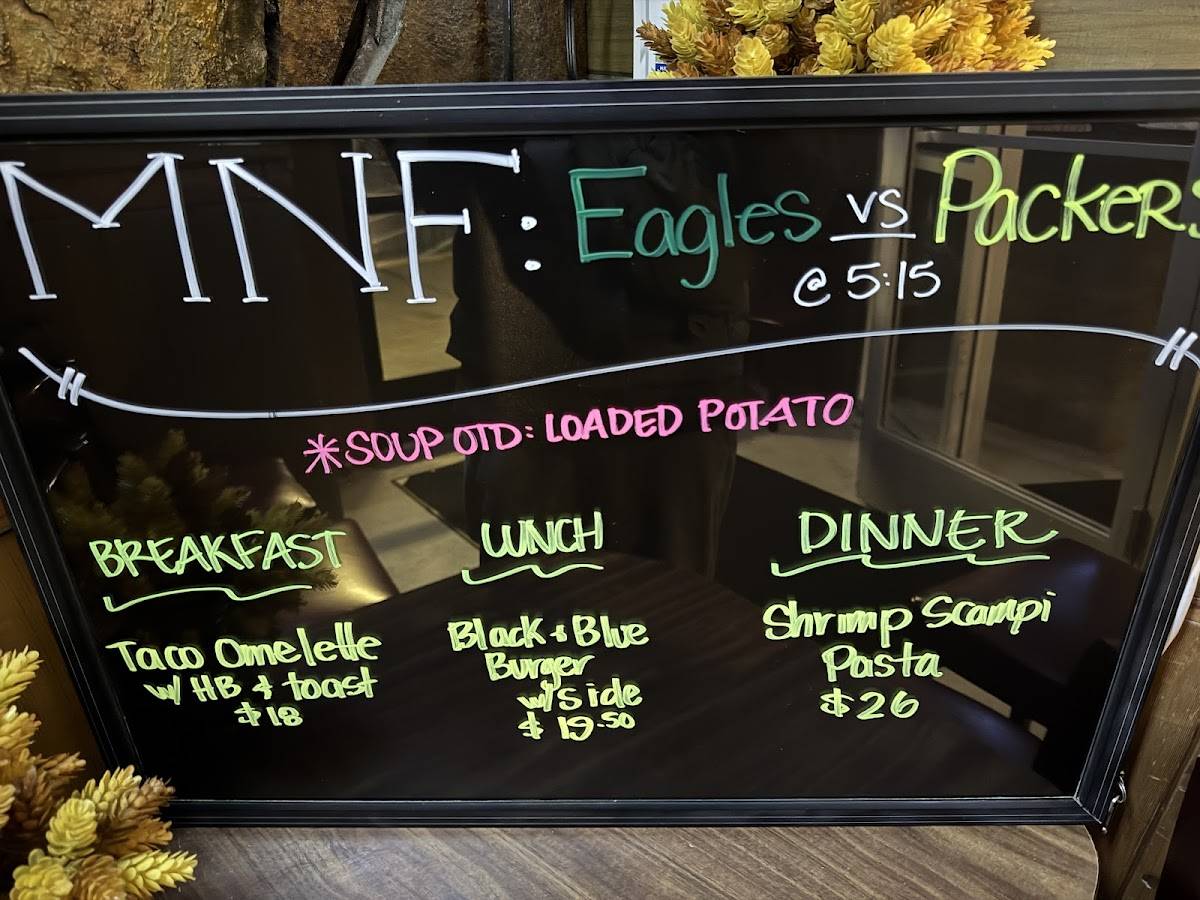 MNF: Eagles vs Packers
@ 5:15
*SOUP OTD: LOADED POTATO
BREAKFAST
Taco Omelette
w/ HB & toast
$18
LUNCH
Black & Blue
Burger
w/side
$19.50
DINNER
Shrimp Scampi
Pasta
$26